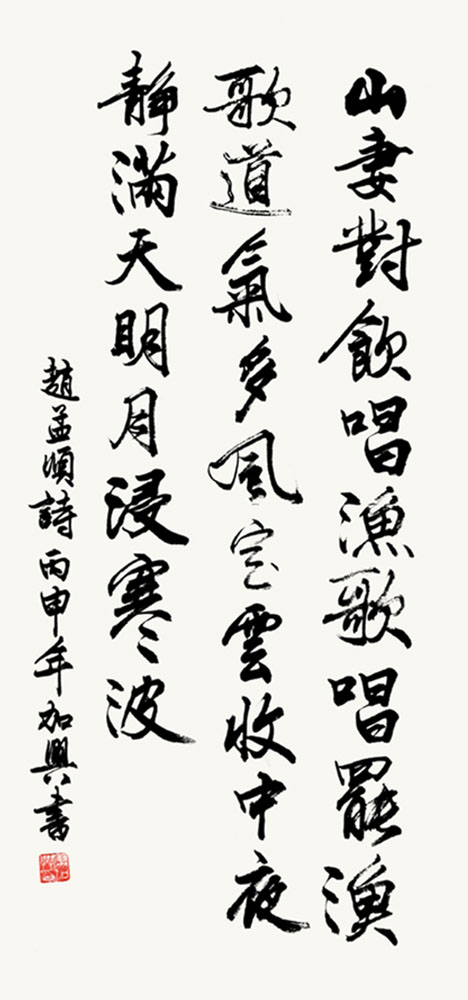 山妻對飲唱漁歌唱罷漁
歌道氣多風定雲收中夜
靜滿天明月浸寒波
趙孟頫詩丙申年加興書